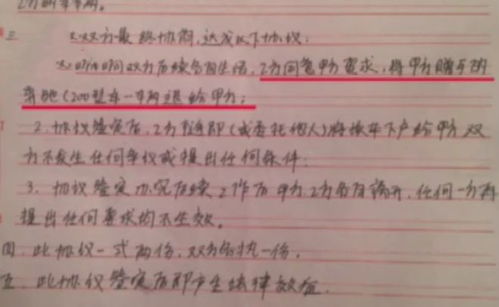 三 双方最终协商，达成以下协议：
双方 生活，乙方同意甲方要求，将甲方赠与的
奔驰（200型车一辆退给甲方；
2. 协议签定后，乙方 即（或委托他人）将该车下户给甲方 双
方不发生任何争议或提出任何条件．
3. 协议签定 后续工作后 甲方乙方各自离开，任何一方再
提出任何要求均不生效。
四．此协议一式两份，双方各执一份．
五．此协议签定后即产生法律效益．